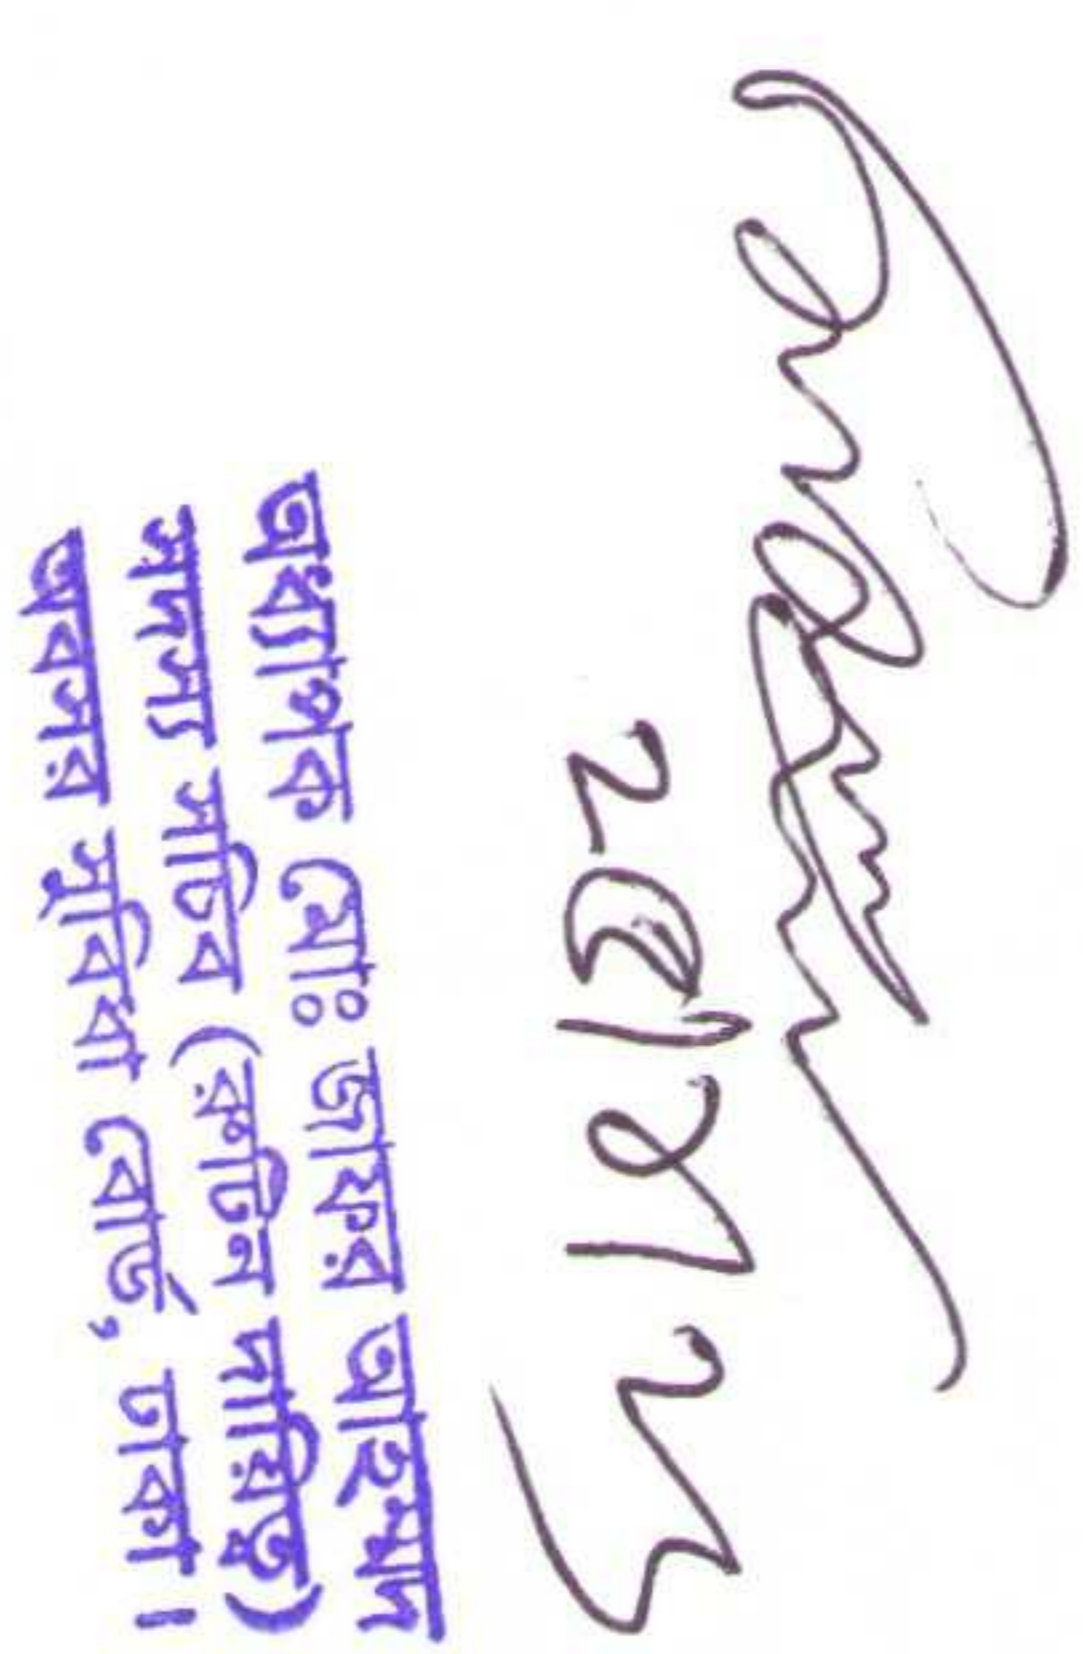 অধ্যাপক মোঃ জাফর আহম্মদ
সদস্য সচিব (রুটিন দায়িত্ব)
অবসর সুবিধা বোর্ড, ঢাকা।